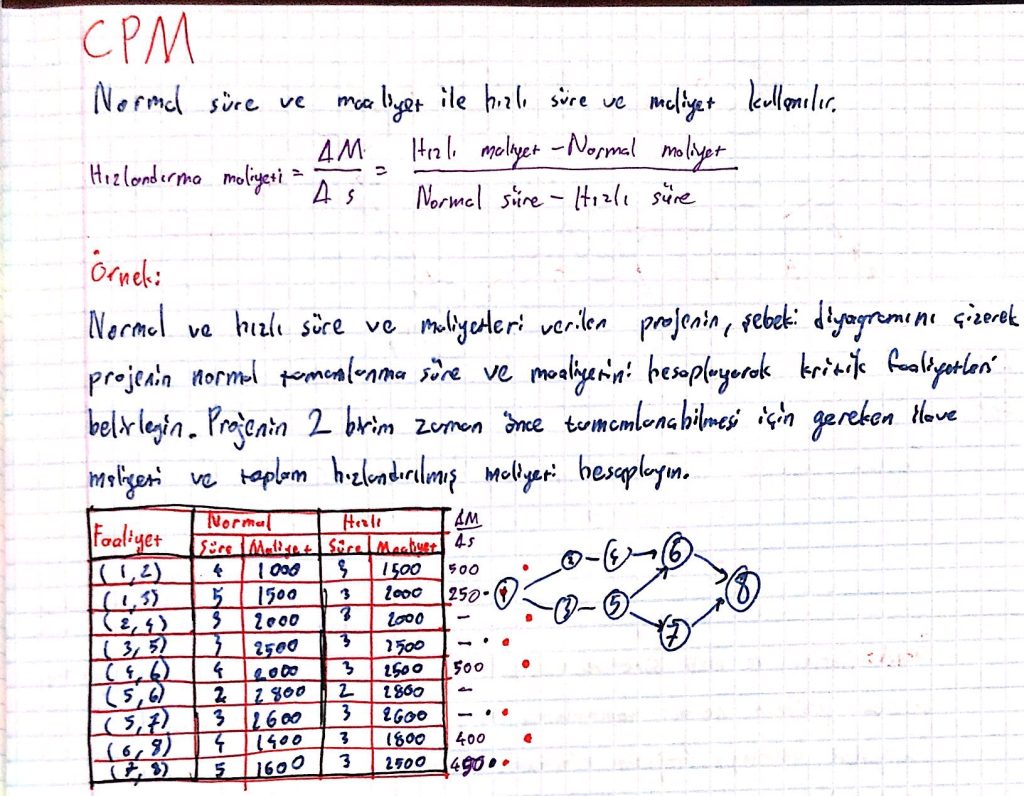 CPM
Normal süre ve maaliyet ile hızlı süre ve maliyet kullanılır.
Hızlandırma maliyeti = ΔM / Δs = Hızlı maliyet - Normal maliyet / Normal süre - Hızlı süre
Örnek:
Normal ve hızlı süre ve maliyetleri verilen projenin, şebeke diyagramını çizerek
projenin normal tamamlanma süre ve maaliyetini hesaplayarak kritik faaliyetleri
belirleyin. Projenin 2 birim zaman önce tamamlanabilmesi için gereken ilave
maliyeti ve toplam hızlandırılmış maliyeti hesaplayın.
Faaliyet Normal Hızlı ΔM/Δs
Süre Maliyet Süre Maaliyet
(1,2) 4 1000 3 1500 500
(1,3) 5 1500 3 2000 250
(2,4) 3 2000 3 2000 -
(3,5) 3 2500 3 2500 -
(4,6) 4 2000 3 2500 500
(5,6) 2 2800 2 2800 -
(5,7) 3 2600 3 2600 -
(6,8) 4 1400 3 1800 400
(7,8) 5 1600 3 2500 450
2 4 6
1 8
3 5
7